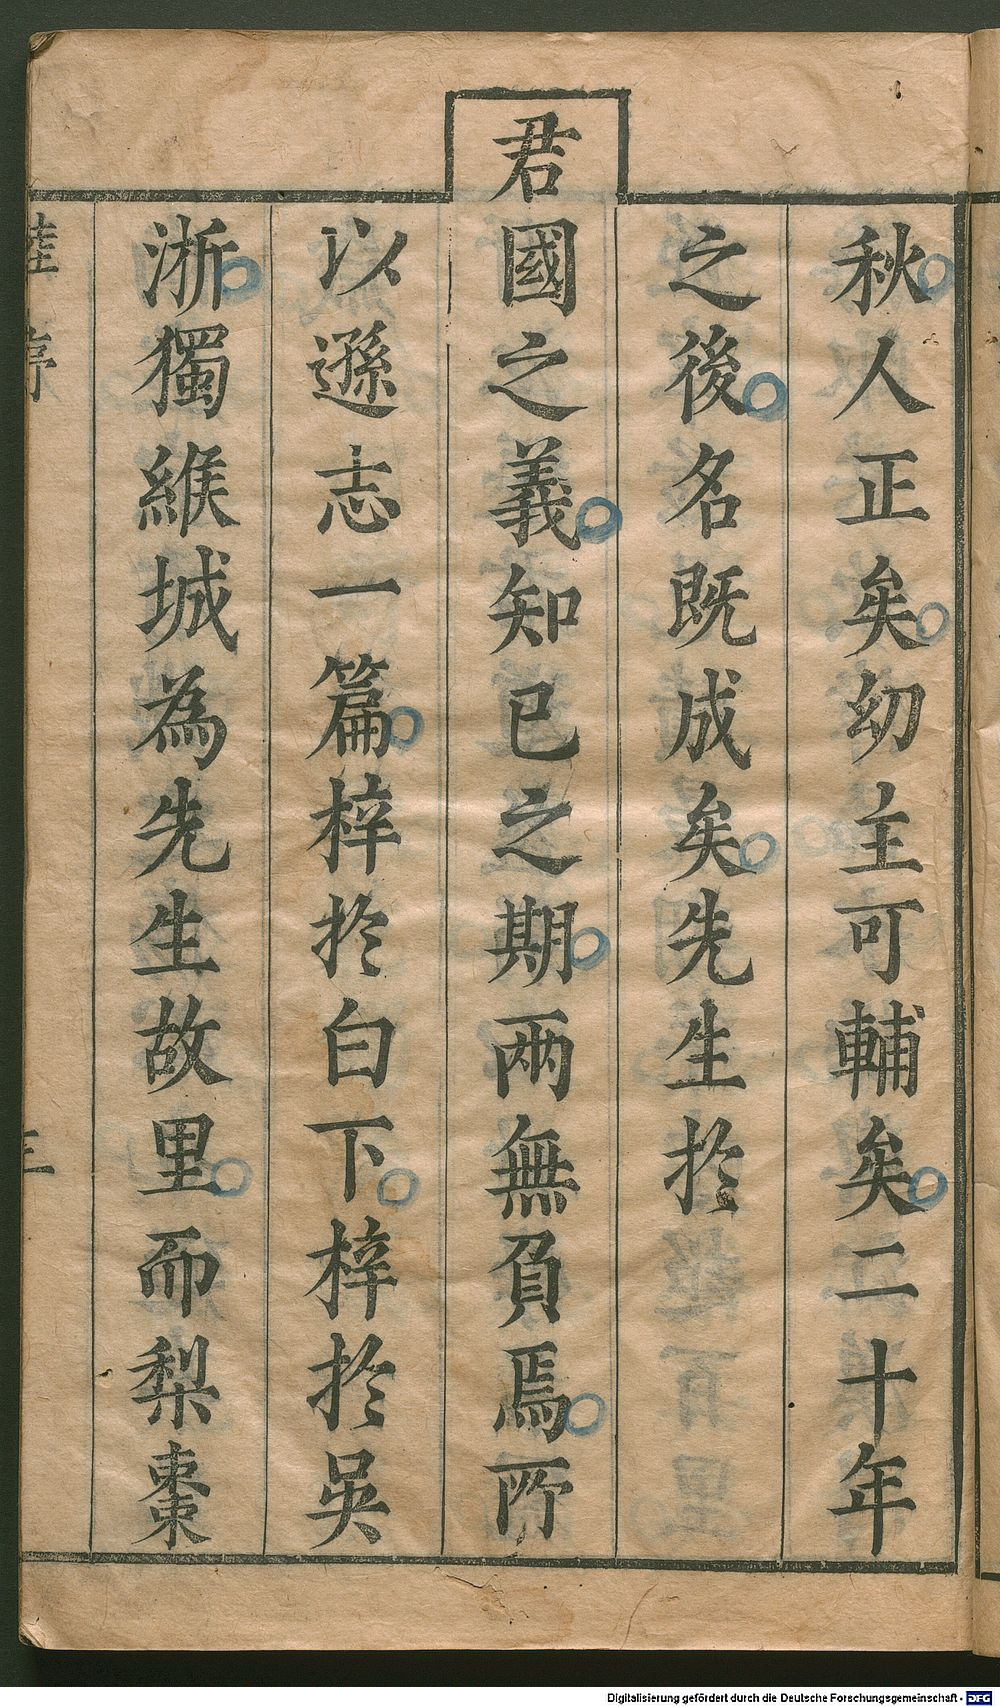 秋人正矣幼主可輔矣二十年
之後名既成矣先生於
君國之義知已之期兩無負焉所
以遜志一篇梓於白下梓於吳
浙獨緱城為先生故里而梨棗
序
三
Digitalisierung gefördert durch die Deutsche Forschungsgemeinschaft - DFG